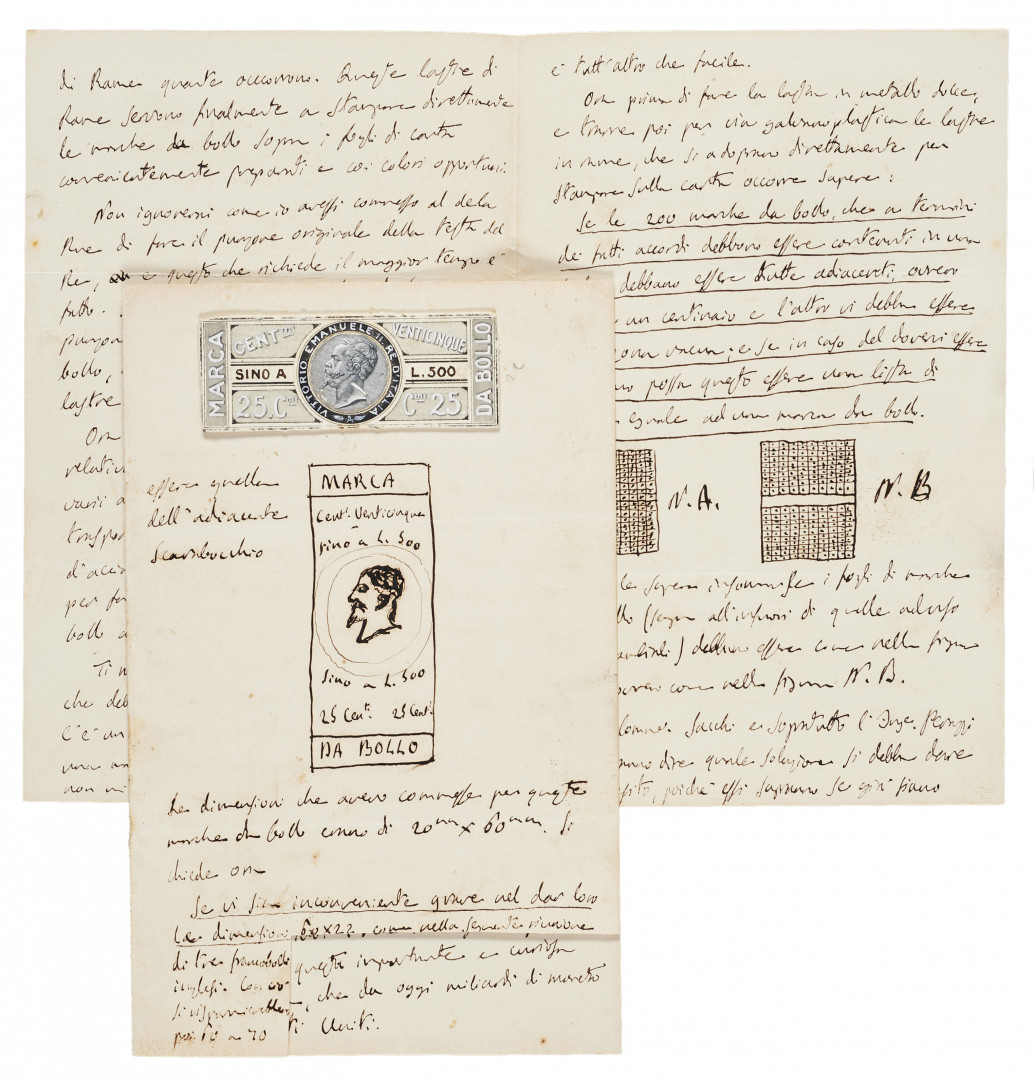 di Rame quante occorrono. Queste lastre di
Rame servono finalmente a stampare direttamente
le marche da bollo sopra i fogli di carta
convenientemente preparati e coi colori opportuni.
Non ignorerai come io avessi commesso al de la
Rue di fare il punzone originale della testa del
Re, e questo che richiede il maggior tempo è
fatto.
punzone
bollo,
lastre
Ora
relativ
varii a
traspo
d'accia
per fa
bollo a
Ti
che deb
C'è un
una
non
è tutt'altro che facile.
Ora prima di fare la lastra in metallo dolce,
e trarre poi per via galvanoplastica le lastre
in rame, che si adoprano direttamente per
stampare sulla carta occorre sapere:
Se le 200 marche da bollo, che a termini
dei fatti accordi debbono essere contenuti in una
debbano essere tutte adiacenti, ovvero
un centinaio e l'altro vi debba essere
zona vacua; e se in caso del doverci essere
possa questo essere una lista di
eguale ad una marca da bollo.
N. A.
N. B
le sapere insomma se i fogli di marche
llo (salvo all'infuori di quelle ad uso
) debbano essere come nella figura
ovvero come nella figura N. B.
Comm. Sacchi e sopratutto l'Inge. Peruzzi
anno dire quale soluzione si debba dare
sito, poiché essi sapranno se già siano
MARCA
CENT.mi VENTICINQUE
SINO A L. 500
VITTORIO EMANUELE II. RE D'ITALIA
25.Cmi Cmi 25
DA BOLLO
essere quella
dell'adiacente
Scarabocchio
MARCA
Cent. Venticinque
fino a L. 500
Sino a L. 500
25 Cent. 25 Cent.
DA BOLLO
Le dimensioni che avevo commesse per queste
marche da bollo erano di 20mm x 60mm. Si
chiede ora
Se vi sia inconveniente grave nel dar loro
le dimensioni, 60x22, come nella seguente riunione
di tre francobolli
inglesi. Con ciò
si risparmierebbero
poi 60 a 70
questa importante e curiosa
, che da oggi miliardi di
ti Uniti.